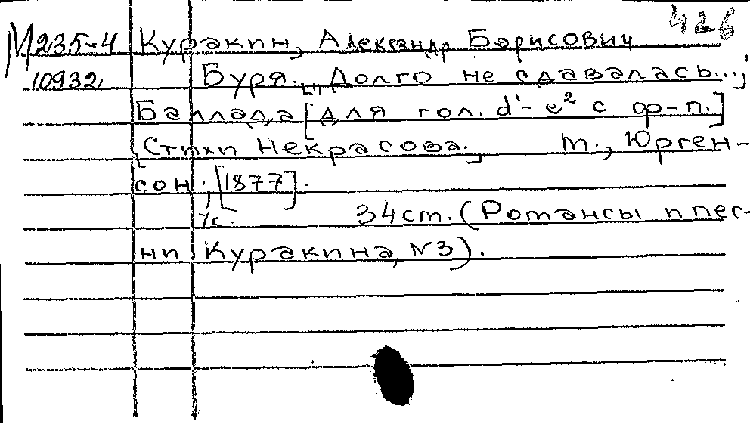 426
М 235-4 Куракин, Александр Борисович
10932 Буря. „Долго не сдавалась...;
Баллада [для гол. d¹-e² с ф-п.]
[Стихи Некрасова.] м., Юрген-
сон, [1877].
34 ст. (Романсы и пес-
ни Куракина, №3).